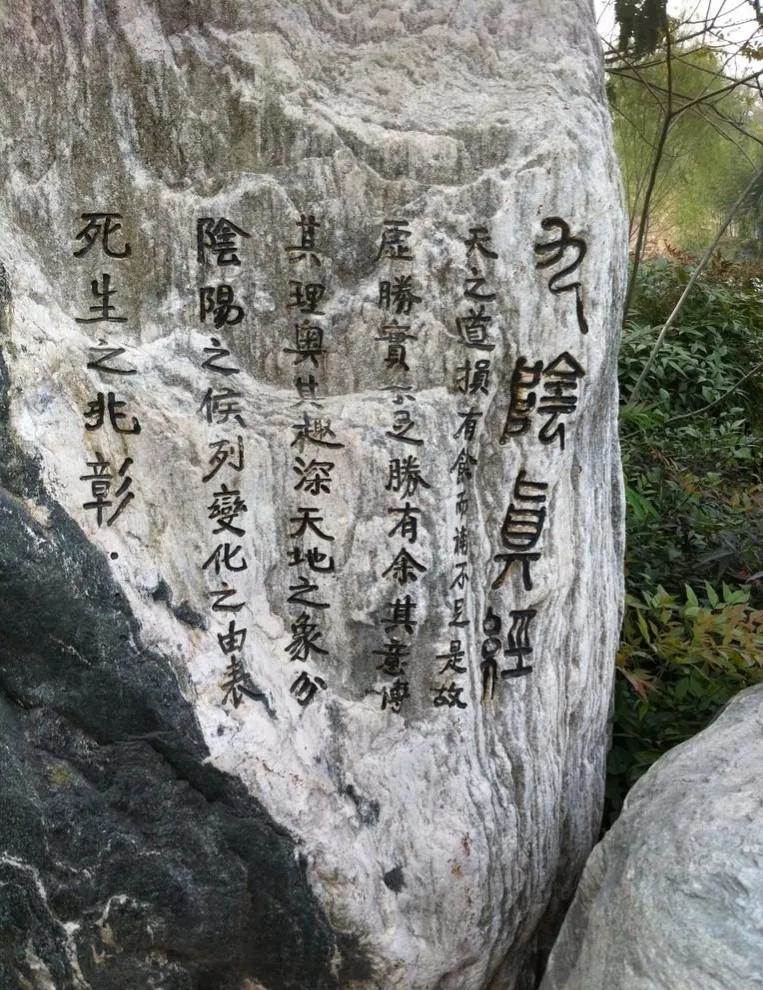 九陰真經
天之道損有餘而補不足是故
虛勝實不足勝有余其意博
其理奧其趣深天地之象分
陰陽之侯列變化之由表
死生之兆彰.